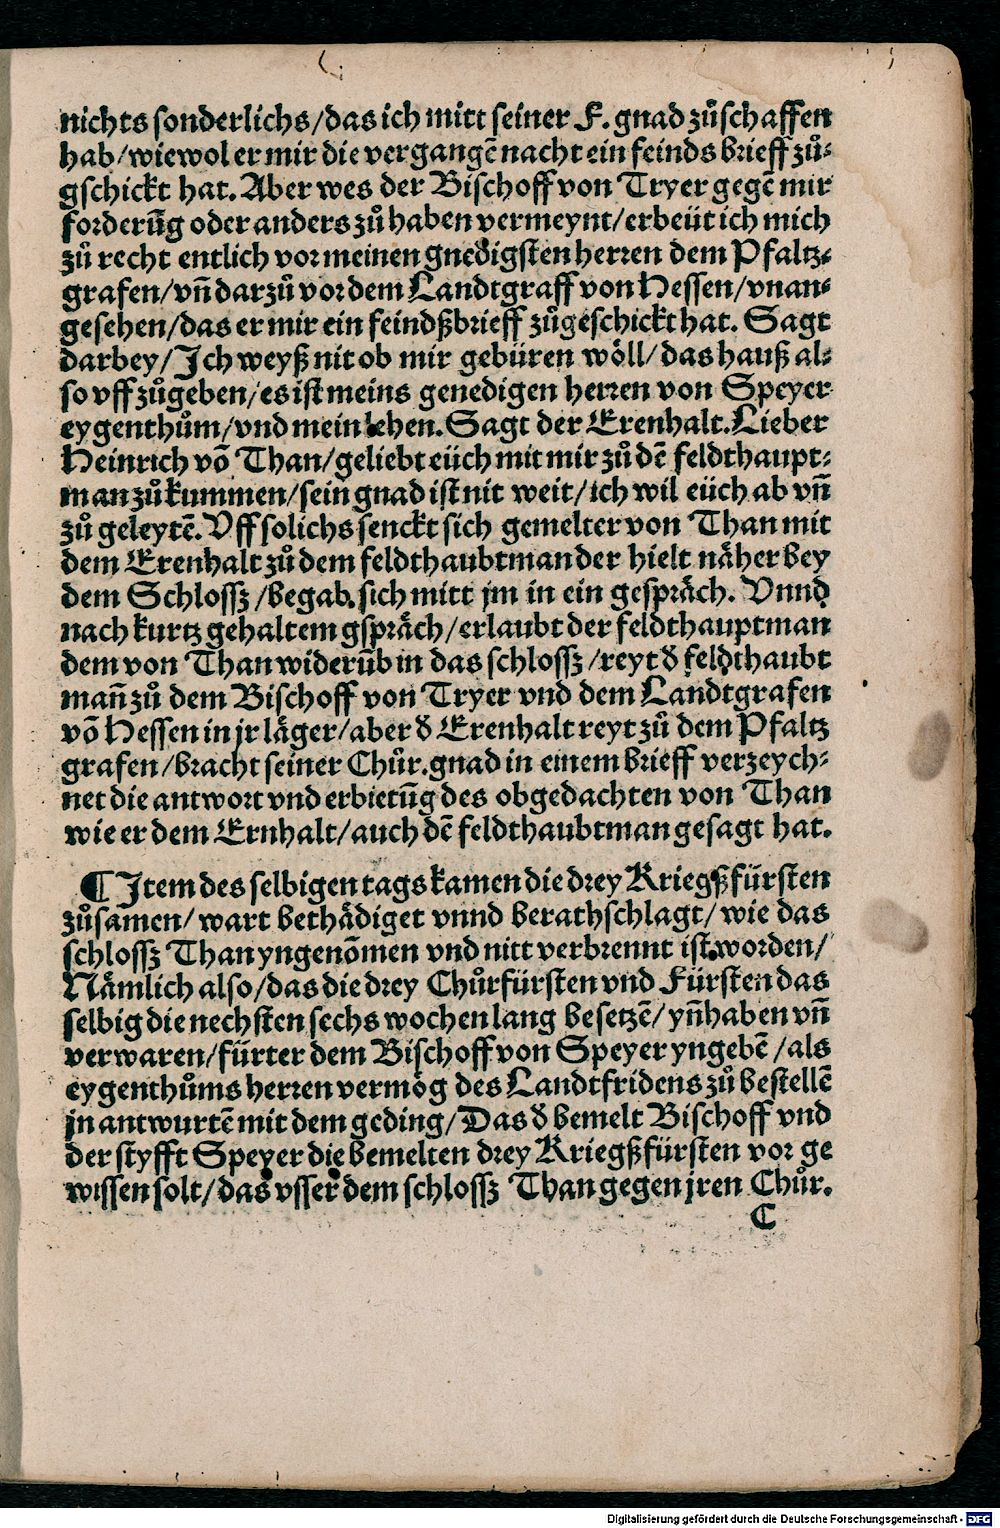 nichts sonderlichs/das ich mitt seiner F. gnad zůschaffen
hab/wiewol er mir die vergangē nacht ein feinds brieff zů-
gschickt hat. Aber wes der Bischoff von Tryer gegē mir
forderūg oder anders zů haben vermeynt/erbeüt ich mich
zů recht entlich vor meinen gnedigsten herren dem Pfaltz-
grafen/vñ darzů vor dem Landtgraff von Hessen/vnan-
gesehen/das er mir ein feindßbrieff zůgeschickt hat. Sagt
darbey/Ich weyß nit ob mir gebüren wöll/das hauß al-
so vff zůgeben/es ist meins genedigen herren von Speyer
eygenthům/vnd mein lehen. Sagt der Erenhalt. Lieber
Heinrich vō Than/geliebt eüch mit mir zů dē feldthaupt-
man zů kummen/sein gnad ist nit weit/ich wil eüch ab vñ
zů geleytē. Vff solichs senckt sich gemelter von Than mit
dem Erenhalt zů dem feldthaubtman der hielt näher bey
dem Schlossz/begab sich mitt jm in ein gespräch. Vnnd
nach kurtz gehaltem gspräch/erlaubt der feldthauptman
dem von Than widerūb in das schlossz/reyt d̄ feldthaubt
mañ zů dem Bischoff von Tryer vnd dem Landtgrafen
vō Hessen in jr läger/aber d̄ Erenhalt reyt zů dem Pfaltz
grafen/bracht seiner Chůr. gnad in einem brieff verzeych-
net die antwort vnd erbietūg des obgedachten von Than
wie er dem Ernhalt/auch dē feldthaubtman gesagt hat.
¶ Item des selbigen tags kamen die drey Kriegßfürsten
zůsamen/wart bethädiget vnnd berathschlagt/wie das
schlossz Than yngenōmen vnd nitt verbrennt ist worden/
Nämlich also/das die drey Chůrfürsten vnd Fürsten das
selbig die nechsten sechs wochen lang besetzē/yñhaben vñ
verwaren/fürter dem Bischoff von Speyer yngebē/als
eygenthůms herren vermög des Landtfridens zů bestellē
jn antwurtē mit dem geding/Das d̄ bemelt Bischoff vnd
der styfft Speyer die bemelten drey Kriegßfürsten vor ge
wissen solt/das vsser dem schlossz Than gegen jren Chůr.
C
Digitalisierung gefördert durch die Deutsche Forschungsgemeinschaft - DFG